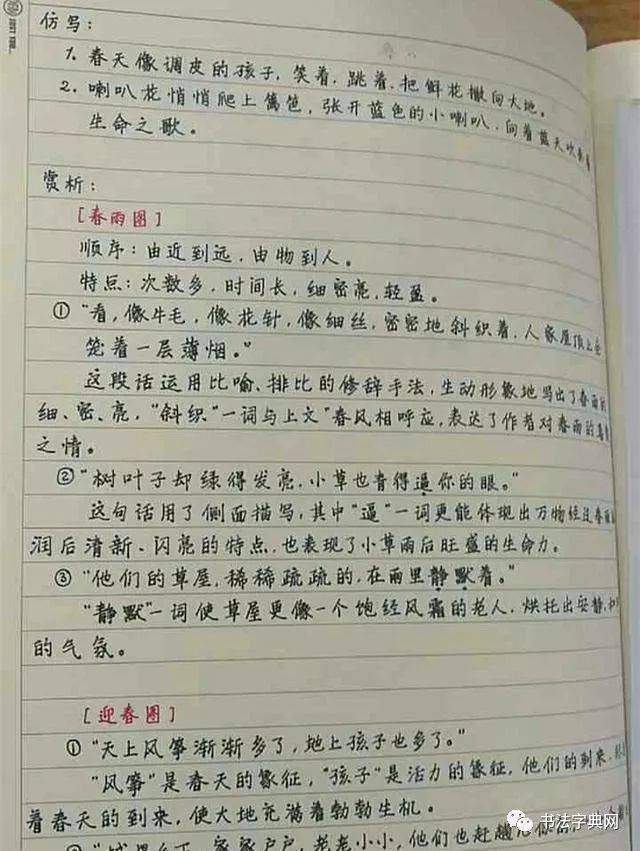 仿写：
1. 春天像调皮的孩子，笑着，跳着，把鲜花撒向大地。
2. 喇叭花悄悄爬上篱笆，张开蓝色的小喇叭，向着蓝天吹
生命之歌。
赏析：
[春雨图]
顺序：由近到远，由物到人。
特点：次数多，时间长，细密亮，轻盈。
① "看，像牛毛，像花针，像细丝，密密地斜织着，人家屋顶上
笼着一层薄烟。"
这段话运用比喻、排比的修辞手法，生动形象地写出了春雨的
细、密、亮，"斜织"一词与上文"春风相呼应，表达了作者对春雨的喜
之情。
② "树叶子却绿得发亮，小草也青得逼你的眼。"
这句话用了侧面描写，其中"逼"一词更能体现出万物经过春雨
润后清新、闪亮的特点，也表现了小草雨后旺盛的生命力。
③ "他们的草屋，稀稀疏疏的，在雨里静默着。"
"静默"一词使草屋更像一个饱经风霜的老人，烘托出安静，和
的气氛。
[迎春图]
① "天上风筝渐渐多了，地上孩子也多了。"
"风筝"是春天的象征，"孩子"是活力的象征，他们的到来，
着春天的到来，使大地充满着勃勃生机。
② "城里乡下，家家户户，老老小小，他们也赶趟
书法字典网